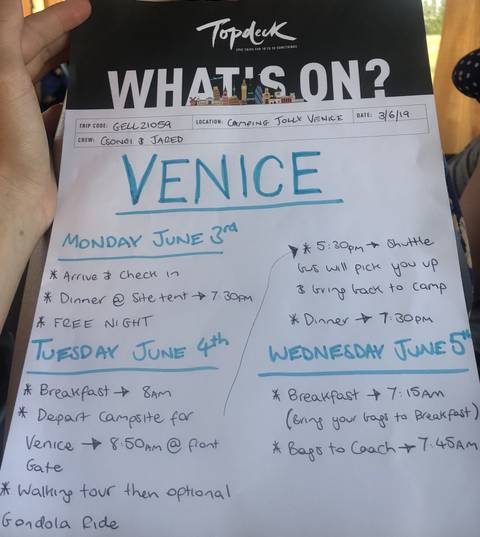 Topdeck
EPIC TRIPS FOR 18 TO 30 SOMETHINGS
WHAT'S ON?
TRIP CODE: GELL21059 LOCATION: CAMPING JOLLY VENICE DATE: 3/6/19
CREW: CSONGI & JARED
VENICE
MONDAY JUNE 3rd
* Arrive & Check in
* Dinner @ Site tent → 7:30pm
* FREE NIGHT
TUESDAY JUNE 4th
* Breakfast → 8am
* Depart Campsite for
Venice → 8:50am @ front
Gate
* Walking tour then optional
Gondola Ride
* 5:30pm → Shuttle
bus will pick you up
& bring back to camp
* Dinner → 7:30pm
WEDNESDAY JUNE 5th
* Breakfast → 7:15am
(Bring your bags to Breakfast)
* Bags to Coach → 7:45am